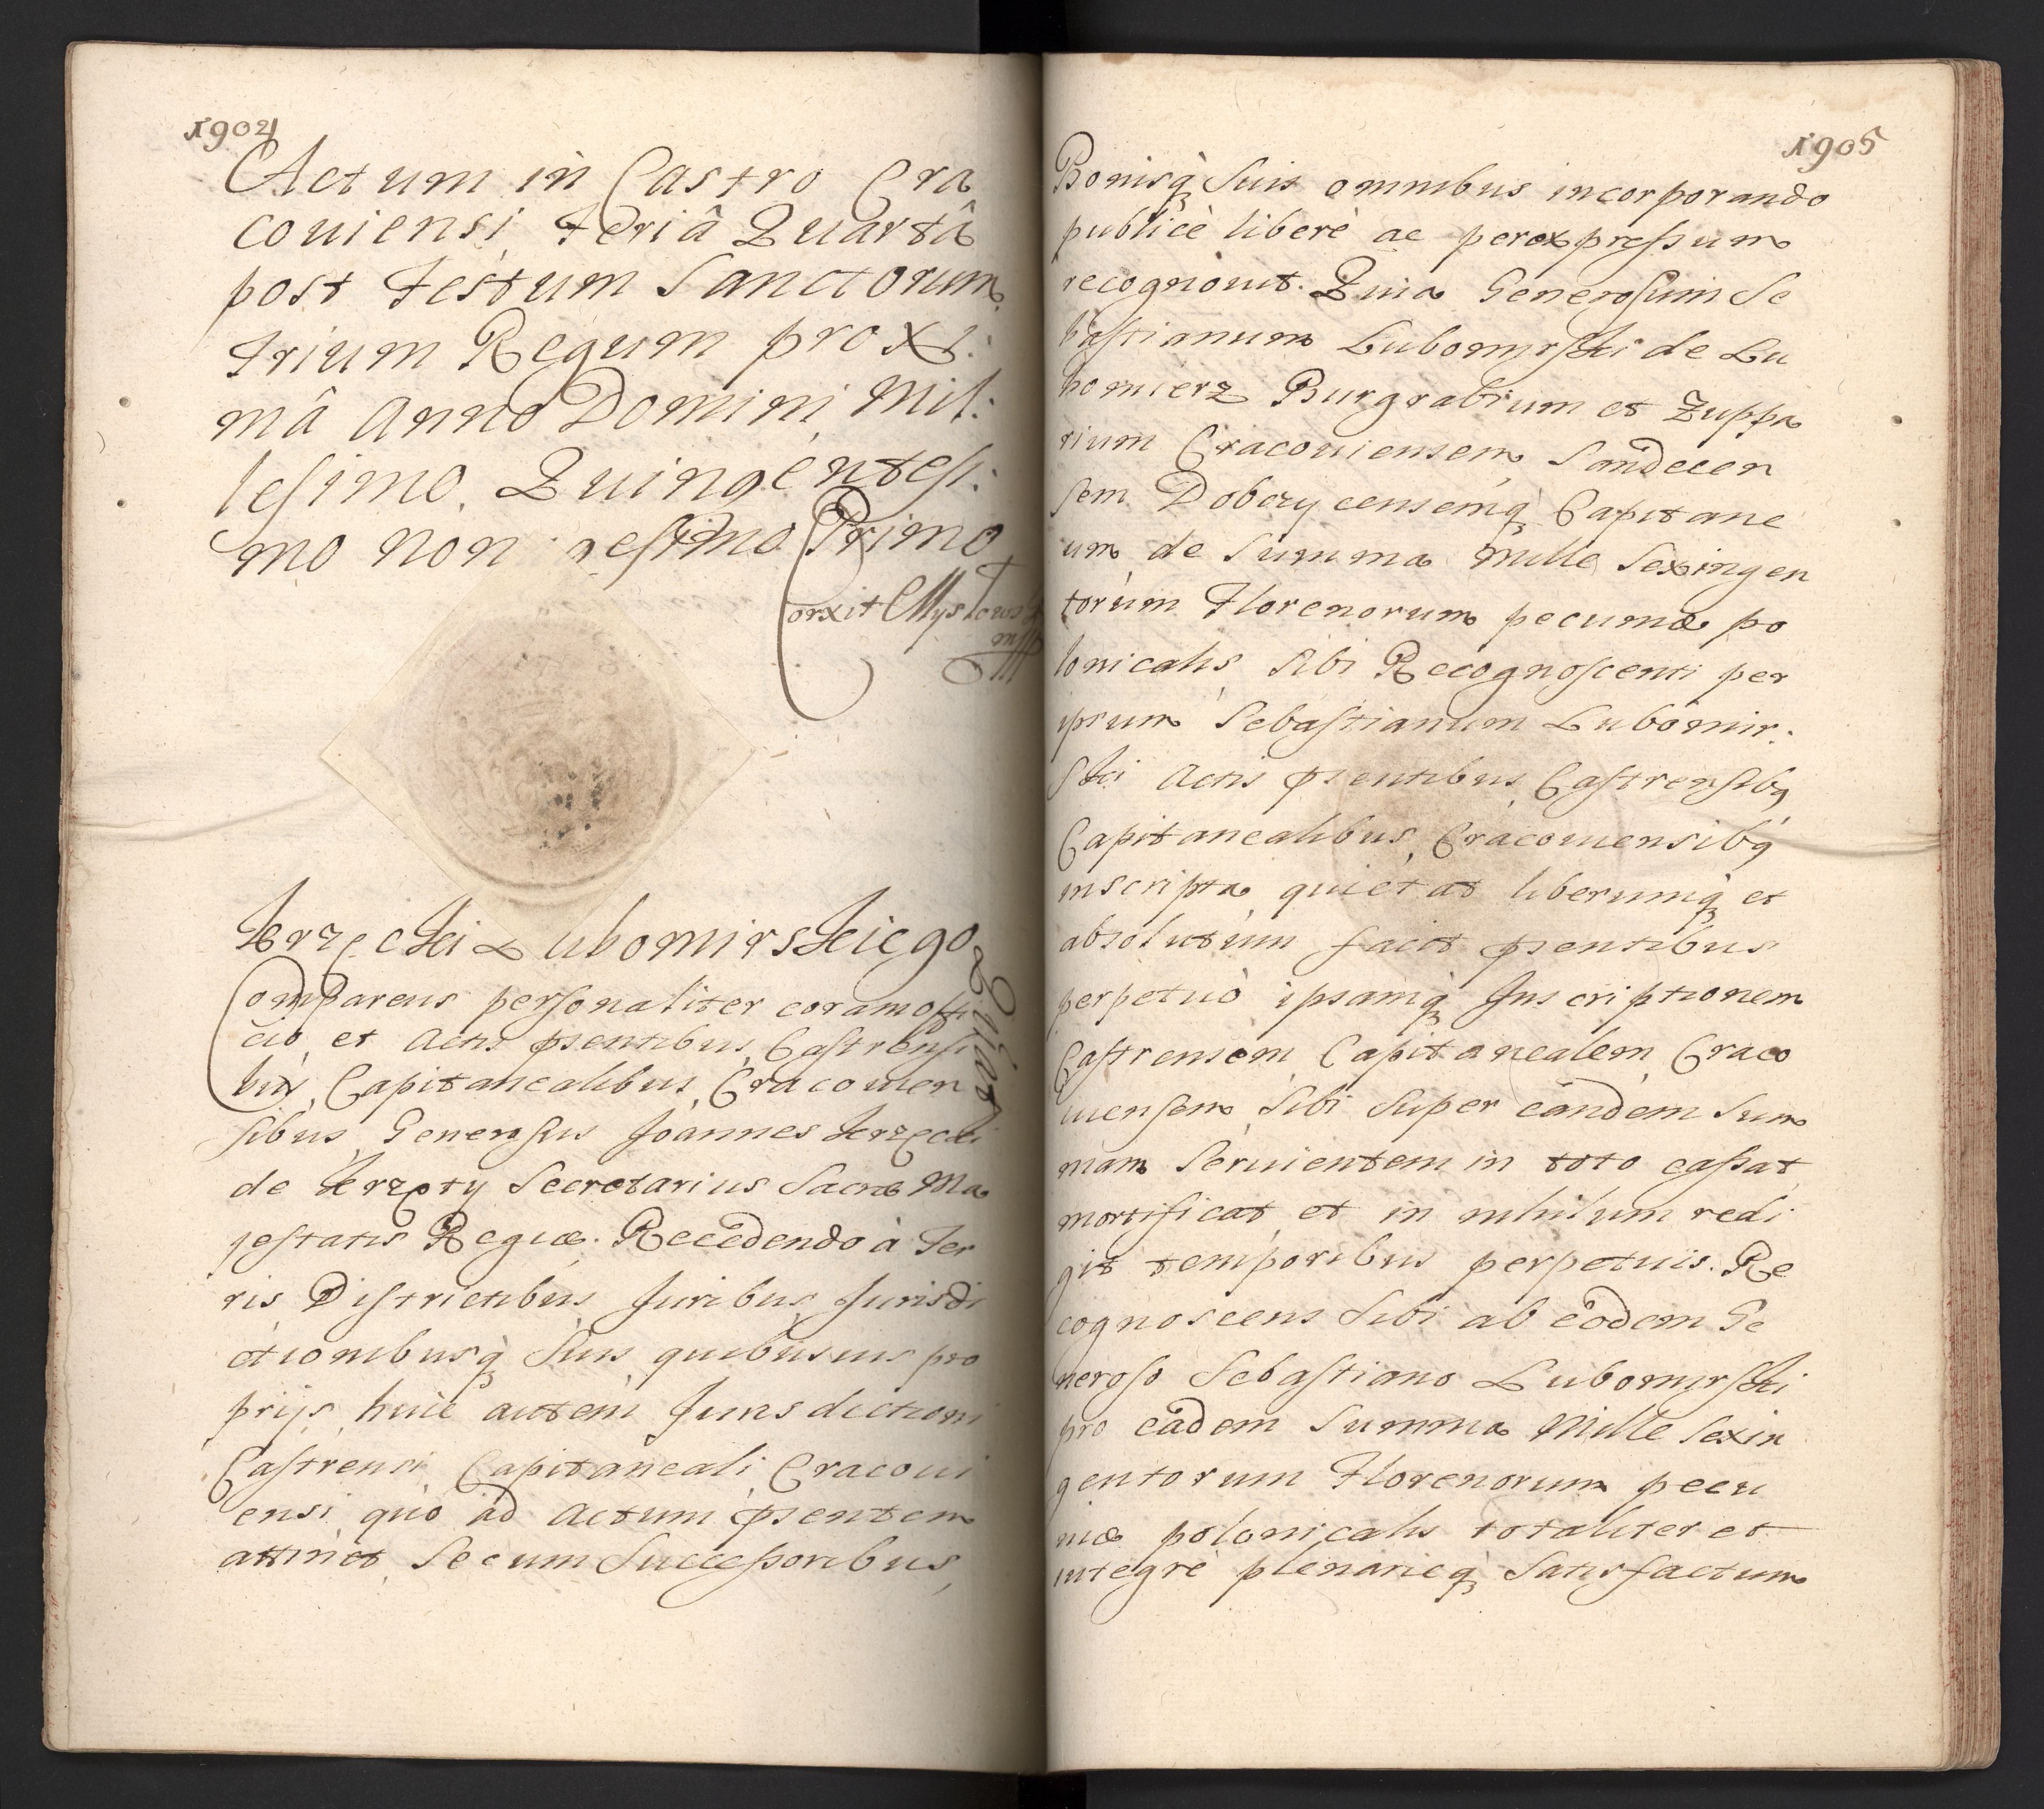 1904
Actum in Castro Cra
couiensi Feriâ Quartâ
post Festum Sanctorum
Trium Regum proxi:
mâ Anno Domini Mil:
lesimo Quingentesi:
mo Non gesimo Primo
Corxit Myskows
mpp
Jerzecki Lubomirskiego
Quietat
Comparens personaliter coram offi
cio et Actis pñtibus Castrensi
bus Capitanealibus Cracouien
sibus Generosus Joannes Jerzecki
de Jerzqty Secretarius Sacræ Ma
jestatis Regiæ. Recedendo à Ter
ris Districtibus Juribus Jurisdi
ctionibusq̀ Suis quibusuis pro
prijs huic autem Jurisdictioni
Castrensi Capitaneali Cracoui
ensi quo ad Actum pñsentem
attinet Secum Successoribus,
1905
Bonisq̀ Suis omnibus incorporando
publicè liberè ac per expressum
recognouit. Quia Generosum Se
bastianum Lubomirski de Lu
bomierz Burgrabium et Zuppa
rium Cracouiensem Sandecen
sem Dobczycensemq̀ Capitane
um de Summa Mille Sexingen
torum Florenorum pecuniæ po
lonicalis Sibi Recognoscenti per
ipsum Sebastianum Lubomir:
ski Actis pñsentibus Castrensibq
Capitanealibus Cracouiensibq
inscripta quietat liberumq̀ et
absolutum facit pñsentibus
perpetuò ipsamq̀ Inscriptionem
Castrensem Capitanealem Craco
uiensem Sibi Super eandem Sum
mam Seruientem in toto cassat
mortificat et in nihilum redi
git temporibus perpetuis. Re
cognoscens Sibi ab eodem Ge
neroso Sebastiano Lubomirski
pro eadem Summa Mille Sexin
gentorum Florenorum pecu
niæ polonicalis totaliter et
integrè plenarieq̀ Satisfactum